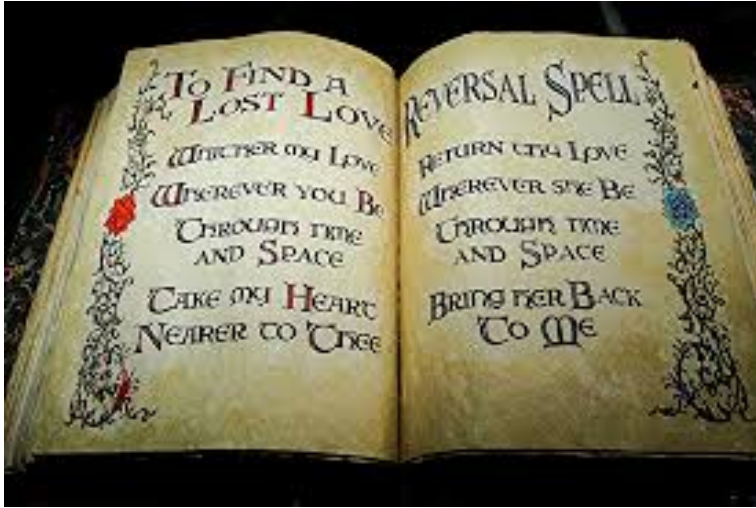 To Find a
Lost Love
Whither my Love
Wherever you Be
Through time
and Space
Take my Heart
Nearer to Thee
Reversal Spell
Return thy Love
Wherever she Be
Through time
and Space
Bring her Back
To Me